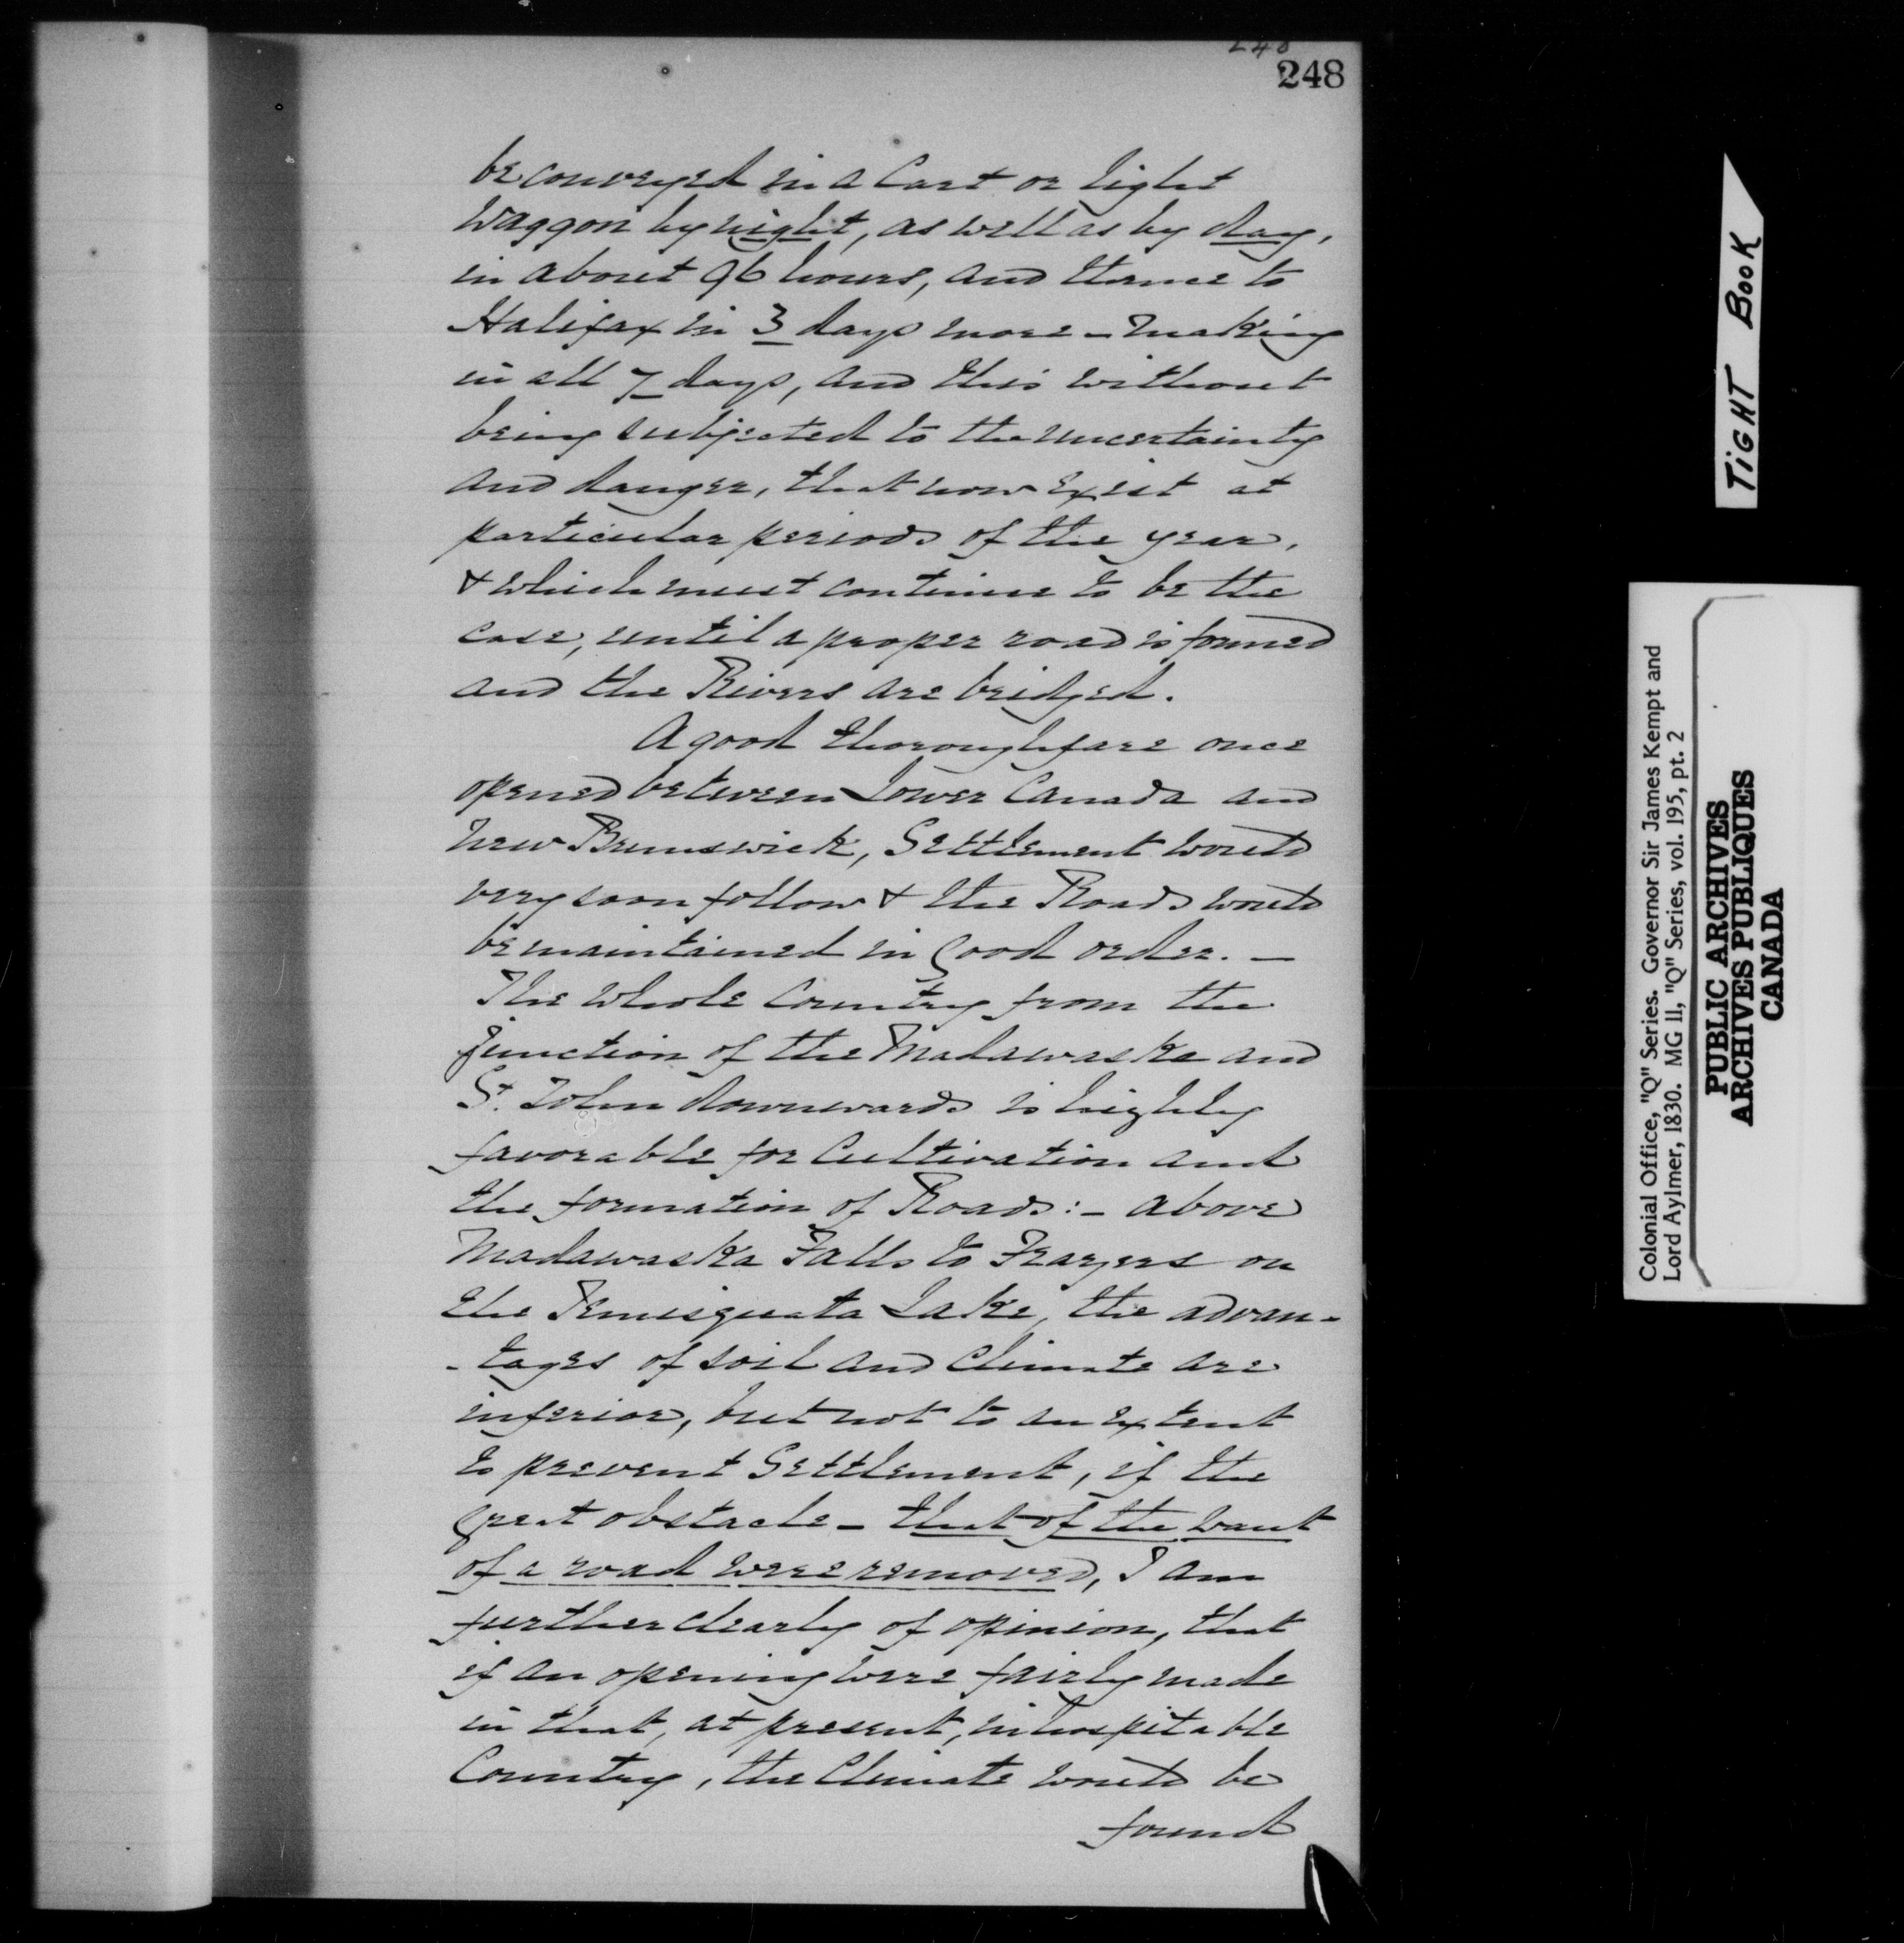 248
be conveyed in a Cart or light
Waggon by night, as well as by day,
in about 96 hours, and thence to
Halifax in 3 days more - making
in all 7 days, and this without
being subjected to the uncertainty
and danger, that now exist at
particular periods of the year,
& which must continue to be the
case, until a proper road is formed
and the Rivers are bridged.
A good thoroughfare once
opened between Lower Canada and
New Brunswick, Settlement would
very soon follow & the Roads would
be maintained in good order. -
The whole Country from the
junction of the Madawaska and
St. John downwards is highly
favorable for Cultivation and
the formation of Roads: - above
Madawaska Falls to Frazers on
the Temisquata Lake, the advan-
-tages of soil and Climate are
inferior, but not to an extent
to prevent Settlement, if the
great obstacle - that of the want
of a road were removed, I am
further clearly of opinion, that
if an opening were fairly made
in that, at present, inhospitable
Country, the Climate would be
found
TIGHT BOOK
Colonial Office, "Q" Series. Governor Sir James Kempt and
Lord Aylmer, 1830. MG 11, "Q" Series, vol. 195, pt. 2
PUBLIC ARCHIVES
ARCHIVES PUBLIQUES
CANADA